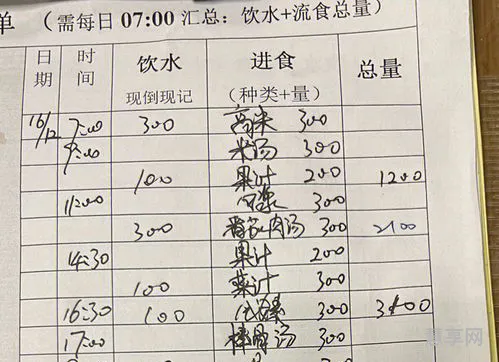 单 (需每日 07:00 汇总: 饮水+流食总量)
日期 时间 饮水 现倒现记 进食 (种类+量) 总量
16/12 7:00 300 300
9:00 米汤 300
100 果汁 200 1200
11:00 300
300 肉汤 300 2100
14:30 果汁 200
100 菜汁 300
16:30 100 300
17:00 棒骨汤 300